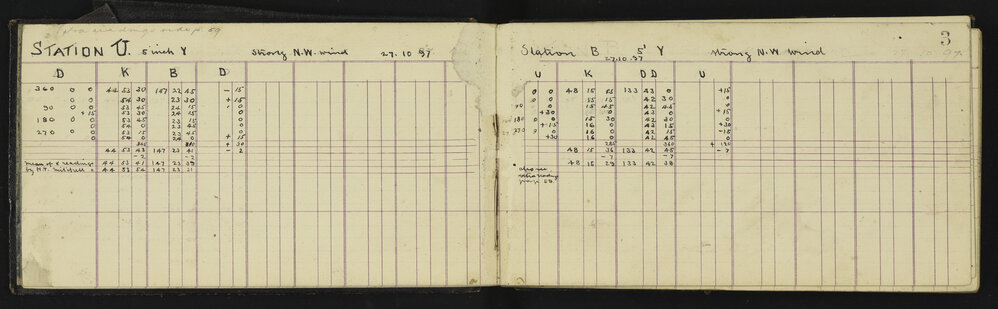 STATION U. 5 inch Y strong N.W. wind 27.10.97
D K B D
360 0 0 44 53 30 147 22 45 - 15
0 0 54 30 23 30 + 15
90 0 0 53 45 24 15 0
+ 15 53 30 24 15
180 0 0 54 0 23 45
0 53 15 23 45
270 0 0 54 0 24 0 + 15
+ 30
44 53 43 147 23 41 - 2
-2 -2
mean of 8 readings 44 53 41 147 23 39
44 53 54 147 23 21
3
Station B 5" Y strong N.W. wind
27.10.97
U K D D U
0 0 48 15 133 43 0 +15
0 0 15 15 42 30 0
90 0 15 45 42 45 0
+30 16 0 43 0 +15
180 0 15 30 42 30 0
+15 16 0 43 15 +30
270 0 16 0 42 15 -15
+30 16 0 42 45 0
285 360
48 15 36 133 42 45 -7
-7 -7
48 15 29 133 42 38
also see
extra reading
page 59.